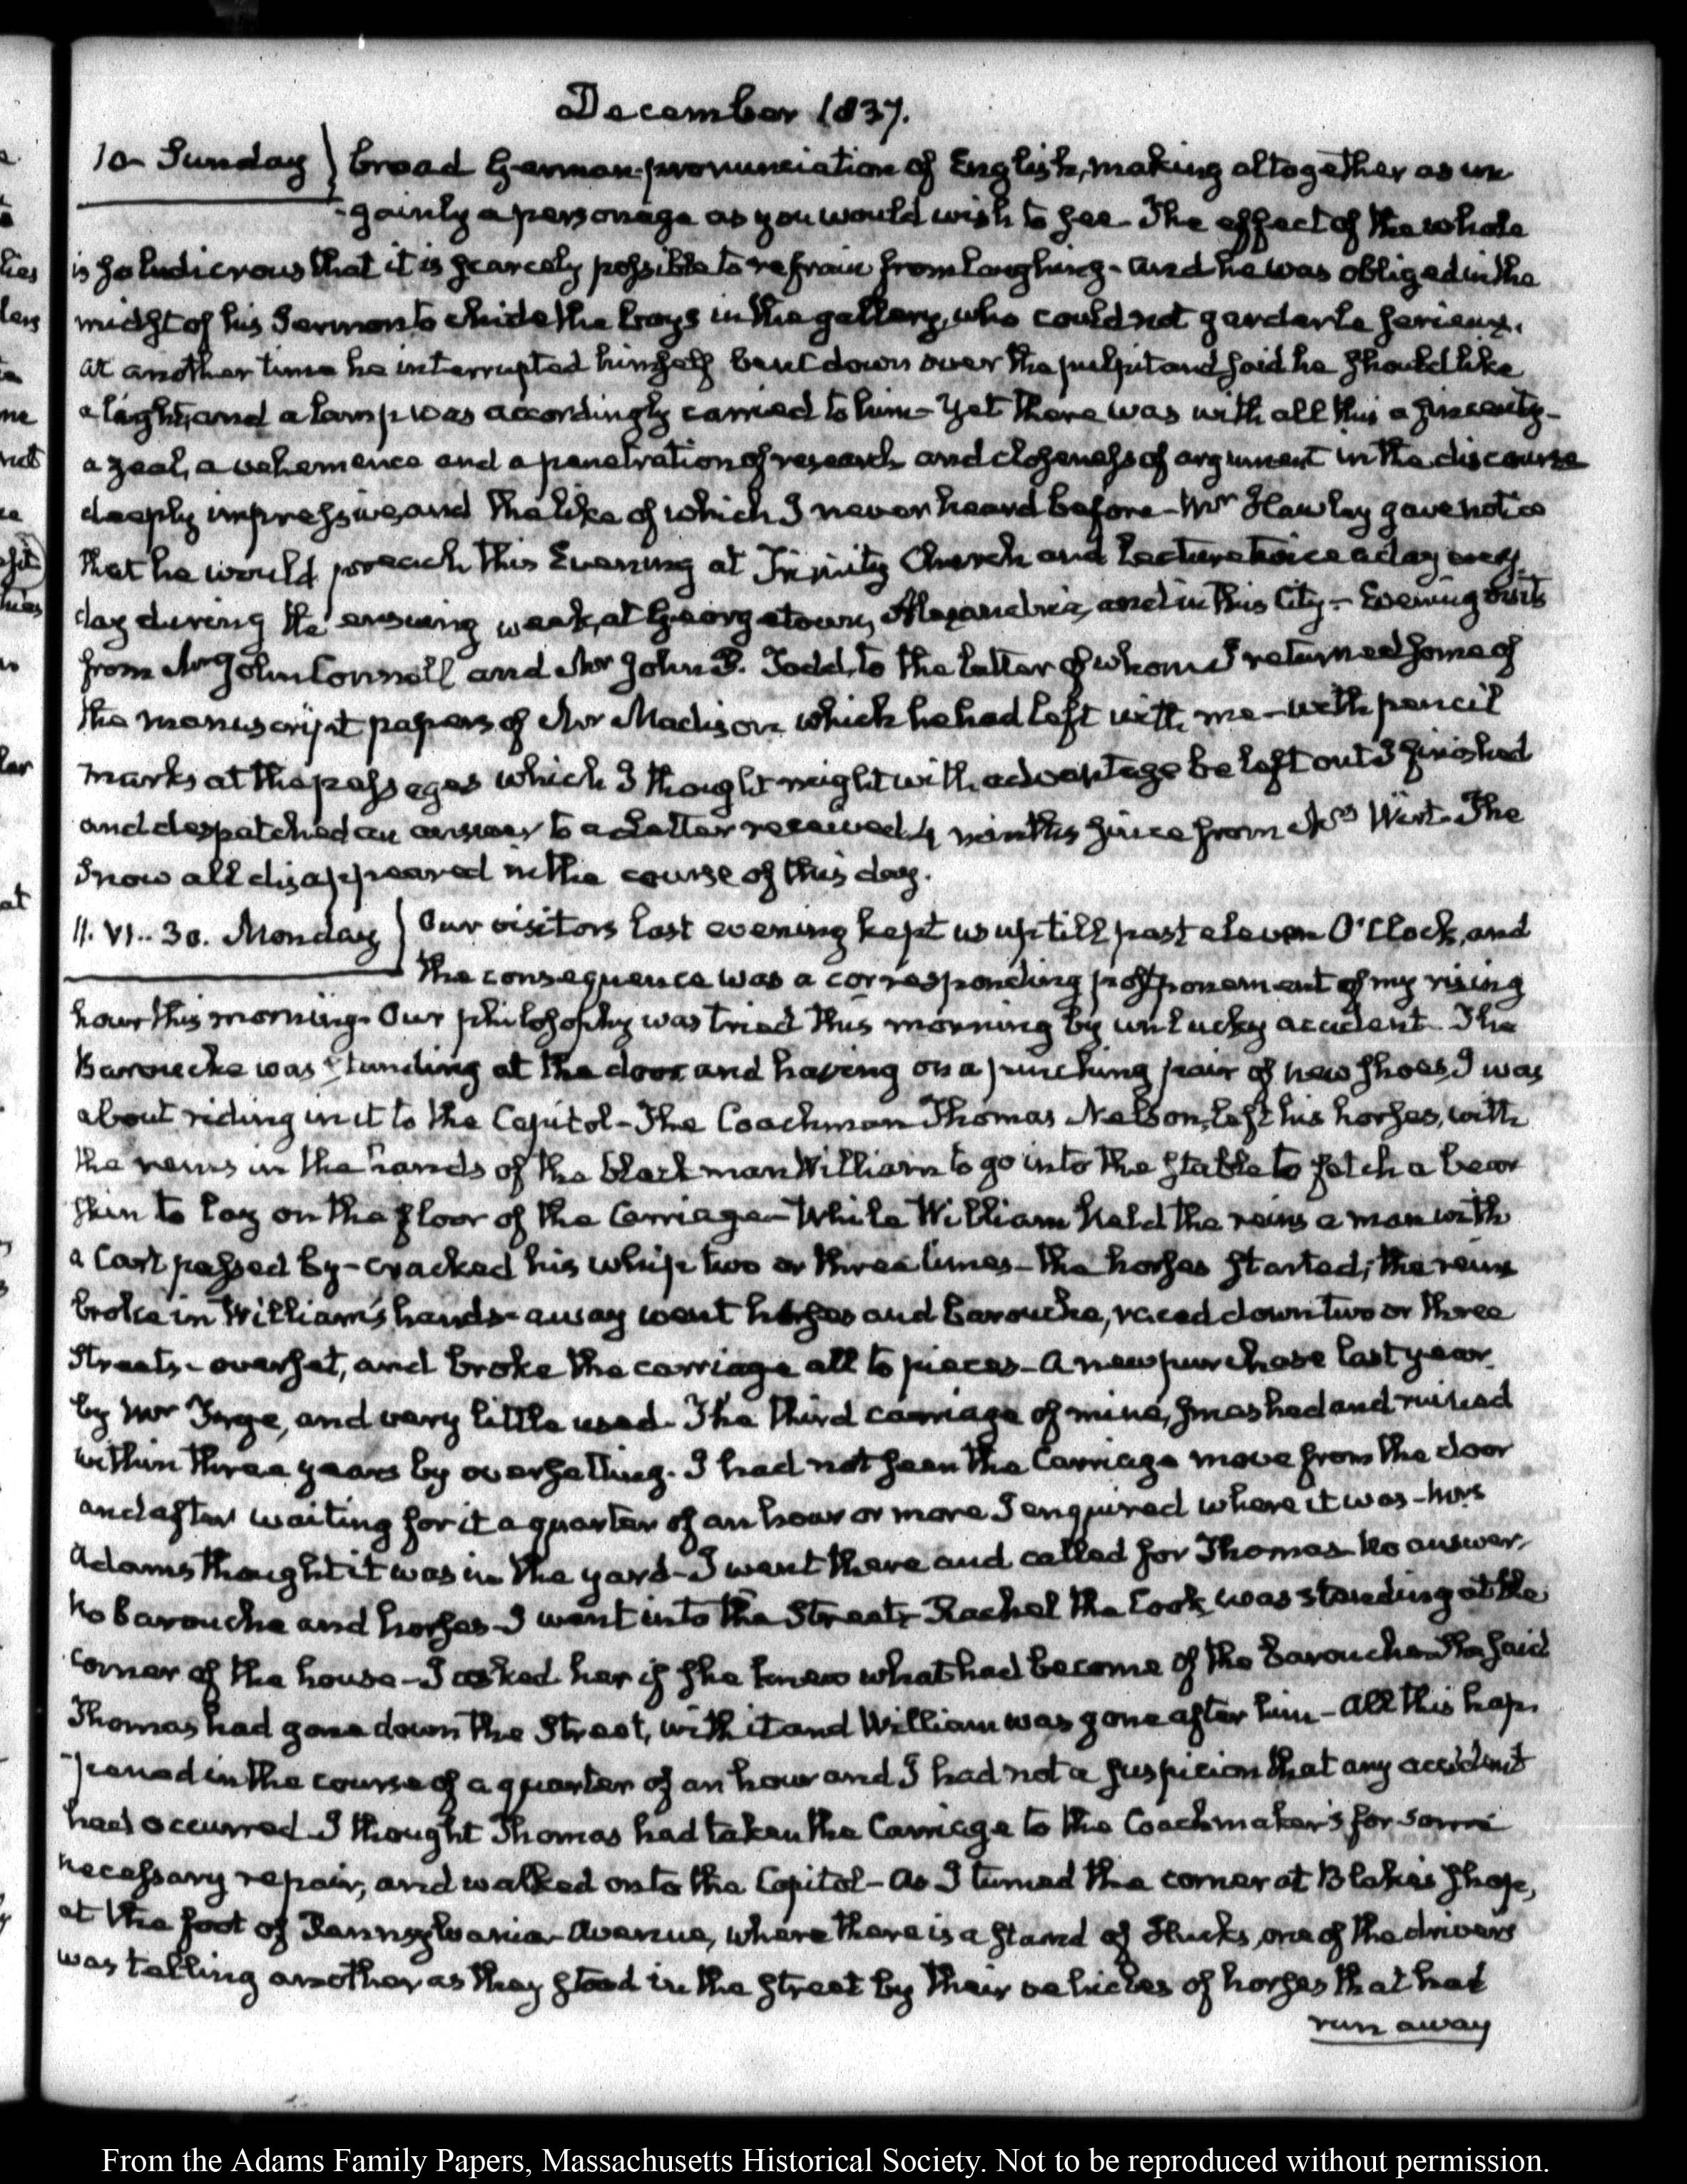 December 1837.
10. Sunday } broad German pronunciation of English, making altogether as un
-gainly a personage as you would wish to see. The effect of the whole
is so ludicrous that it is scarcely possible to refrain from laughing - and he was obliged in the
midst of his Sermon to chide the boys in the gallery, who could not garder le serieux.
at another time he interrupted himself bent down over the pulpit and said he should like
a light, and a lamp was accordingly carried to him - Yet there was with all this a sincerity -
a zeal, a vehemence and a penetration of research and closeness of argument in the discourse
deeply impressive, and the like of which I never heard before - Mr Hawley gave notice
that he would preach this Evening at Trinity Church and Lecture twice a day every
day during the ensuing week, at Georgetown, Alexandria, and in this City - Evening visits
from Mr John Connell and Mr John P. Todd, to the latter of whom I returned some of
the manuscript papers of Mr Madison which he had left with me - with pencil
marks at the passages which I thought might with advantage be left out I finished
and despatched an answer to a Letter received 4 months since from Mrs Wirt. The
snow all disappeared in the course of this day.
11. VI.. 30. Monday } Our visitors last evening kept us up till past eleven O'Clock, and
the consequence was a corresponding postponement of my rising
hour this morning. Our philosophy was tried this morning by unlucky accident. The
Barouche was standing at the door and having on a pinching pair of new shoes, I was
about riding in it to the Capitol - The Coachman Thomas Nelson, left his horses, with
the reins in the hands of the black man William to go into the stable to fetch a bear
skin to lay on the floor of the Carriage - While William held the reins a man with
a Cart passed by - cracked his whip two or three times - the horses started; the reins
broke in William's hands - away went horses and barouche, raced down two or three
Streets - overset, and broke the carriage all to pieces - A new purchase last year
by Mr Frye, and very little used. The third carriage of mine, smashed and ruined
within three years by oversetting. I had not seen the Carriage move from the door
and after waiting for it a quarter of an hour or more I enquired where it was - Mrs
Adams thought it was in the yard - I went there and called for Thomas - No answer.
No barouche and horses - I went into the Street - Rachel the Cook was standing at the
corner of the house - I asked her if she knew what had become of the barouche - She said
Thomas had gone down the Street, with it and William was gone after him - All this hap
-pened in the course of a quarter of an hour and I had not a suspicion that any accident
had occurred. I thought Thomas had taken the Carriage to the Coachmaker's for some
necessary repair, and walked on to the Capitol - As I turned the corner at Blake's shop,
at the foot of Pennsylvania Avenue, where there is a stand of Hacks, one of the drivers
was telling another as they stood in the street by their vehicles of horses that had
run away
From the Adams Family Papers, Massachusetts Historical Society. Not to be reproduced without permission.